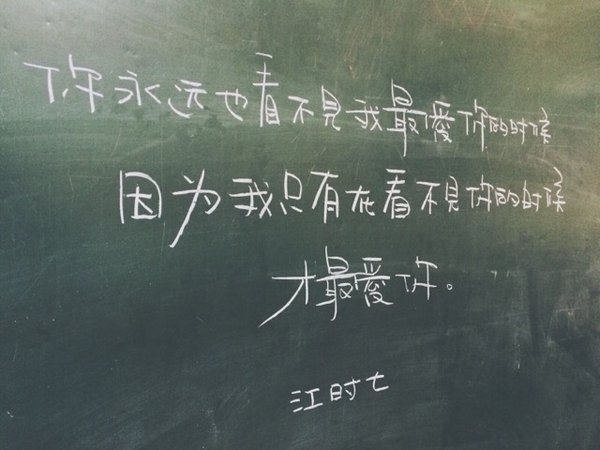 你永远也看不見我最愛你的时候
因为我只有在看不見你的时候
才最愛你。
江时七